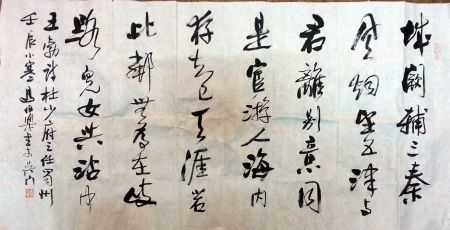 城闕輔三秦
風烟望五津与
君離別意同
是宦游人海内
存知己天涯若
比鄰無為在岐
路兒女共沾巾
王勃詩杜少府之任蜀州
壬辰小寒